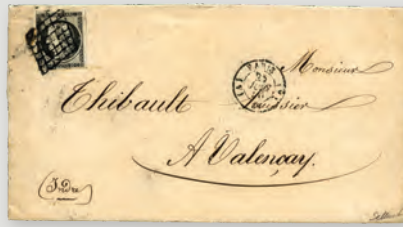 PARIS
Monsieur
Thibault huissier
A Valençay.
(Indre)